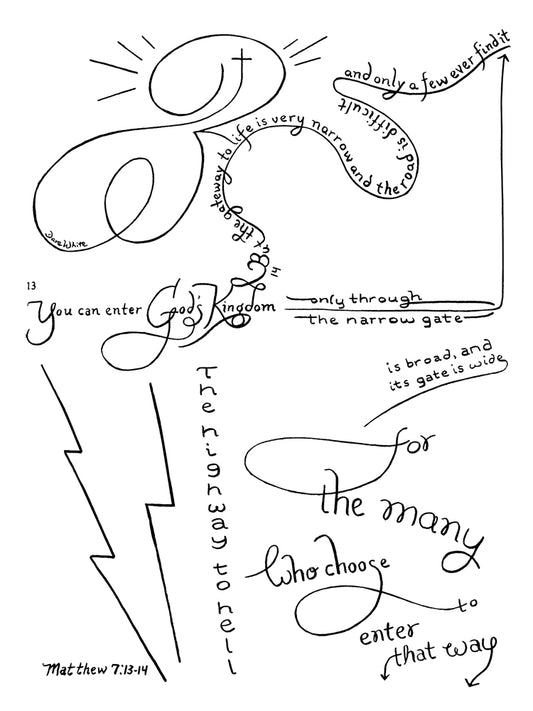 13
You can enter God's Kingdom
only through
the narrow gate
The highway to hell
is broad, and
its gate is wide
for
the many
who choose
to
enter
that way
14
But the gateway to life is very narrow and the road is difficult
and only a few ever find it
Dave White
Matthew 7:13-14